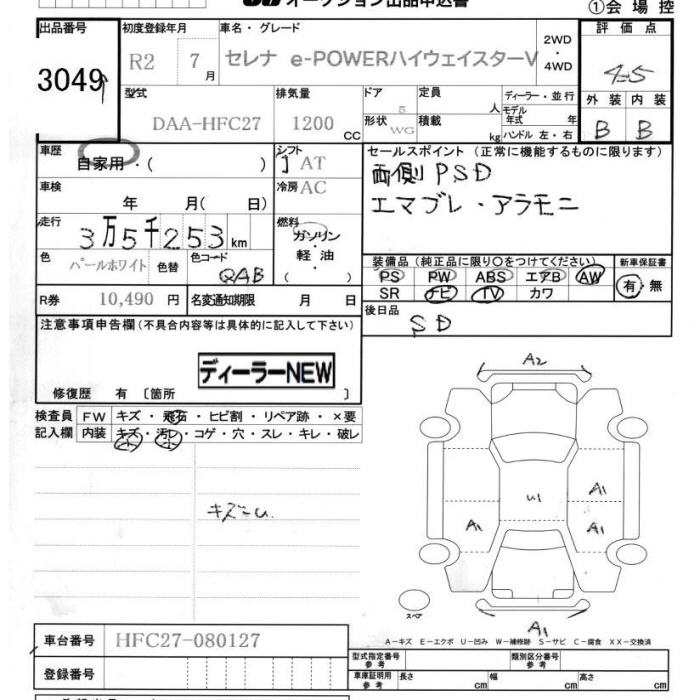 オークション出品申込書
①会場控
出品番号 初度登録年月 車名・グレード 評価点
3049 R2 7月 セレナ e-POWERハイウェイスターV 2WD・4WD 4.5
型式 排気量 ドア 定員 人 ディーラー・並行 外装 内装
DAA-HFC27 1200 CC 5 モデル年式 年 B B
形状 WG 積載 kg ハンドル 左・右
車歴 自家用・( ) シフト AT セールスポイント (正常に機能するものに限ります)
車検 年 月( 日) 冷房 AC 両側PSD
エマブレ・アラモニ
走行 3万5千253km 燃料 ガソリン・軽油・( )
色 パールホワイト 色替 色コード QAB
装備品 (純正品に限り○をつけてください) 新車保証書
PS PW ABS エアB AW 有・無
SR ナビ TV カワ
R券 10,490円 名変通知期限 月 日
後日品 SD
注意事項申告欄(不具合内容等は具体的に記入して下さい)
ディーラーNEW
修復歴 有 〔箇所 〕
検査員記入欄 FW キズ・飛石・ヒビ割・リペア跡・×要
内装 キズ・汚レ・コゲ・穴・スレ・キレ・破レ
小 小
A2
U1
A1
A1 A1
スペア
A1
A-キズ E-エクボ U-凹み W-補修跡 S-サビ C-腐食 XX-交換済
車台番号 HFC27-080127
登録番号
型式指定番号 参考 類別区分番号 参考
車庫証明用 参考 長さ cm 幅 cm 高さ cm